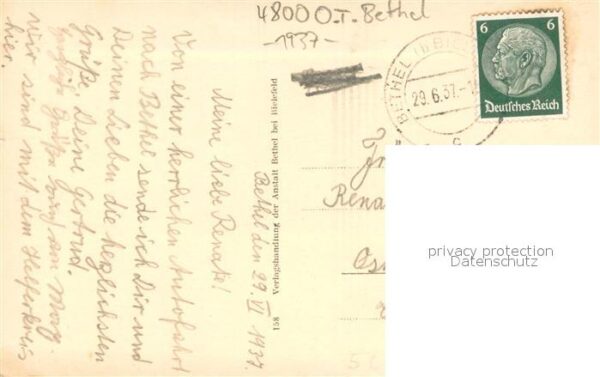 4800 O.T. Bethel
-1937-
BETHEL (b BIE
29.6.37.-1
6 6
Deutsches Reich
Bethel den 29. VI 1937.
Meine liebe Renate!
Von einer herrlichen Autofahrt
nach Bethel sende ich Dir und
Deinen Lieben die herzlichsten
Grüße, Deine Gertrud.
Grüße
wir sind mit dem Helferkreis
hier.
158 Verlagshandlung der Anstalt Bethel bei Bielefeld
Rena
privacy protection
Datenschutz